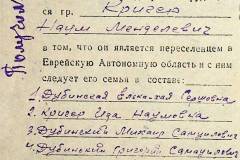 ся гр. Кригер
Наум Менделевич
в том, что он является переселенцем в
Еврейскую Автономную область и с ним
следует его семья в составе:
1. Дубинская Серговна
2. Кригер Ида Наумовна
3. Дубинский Михаил Самуилович
4. Дубинский Григорий Самуилович